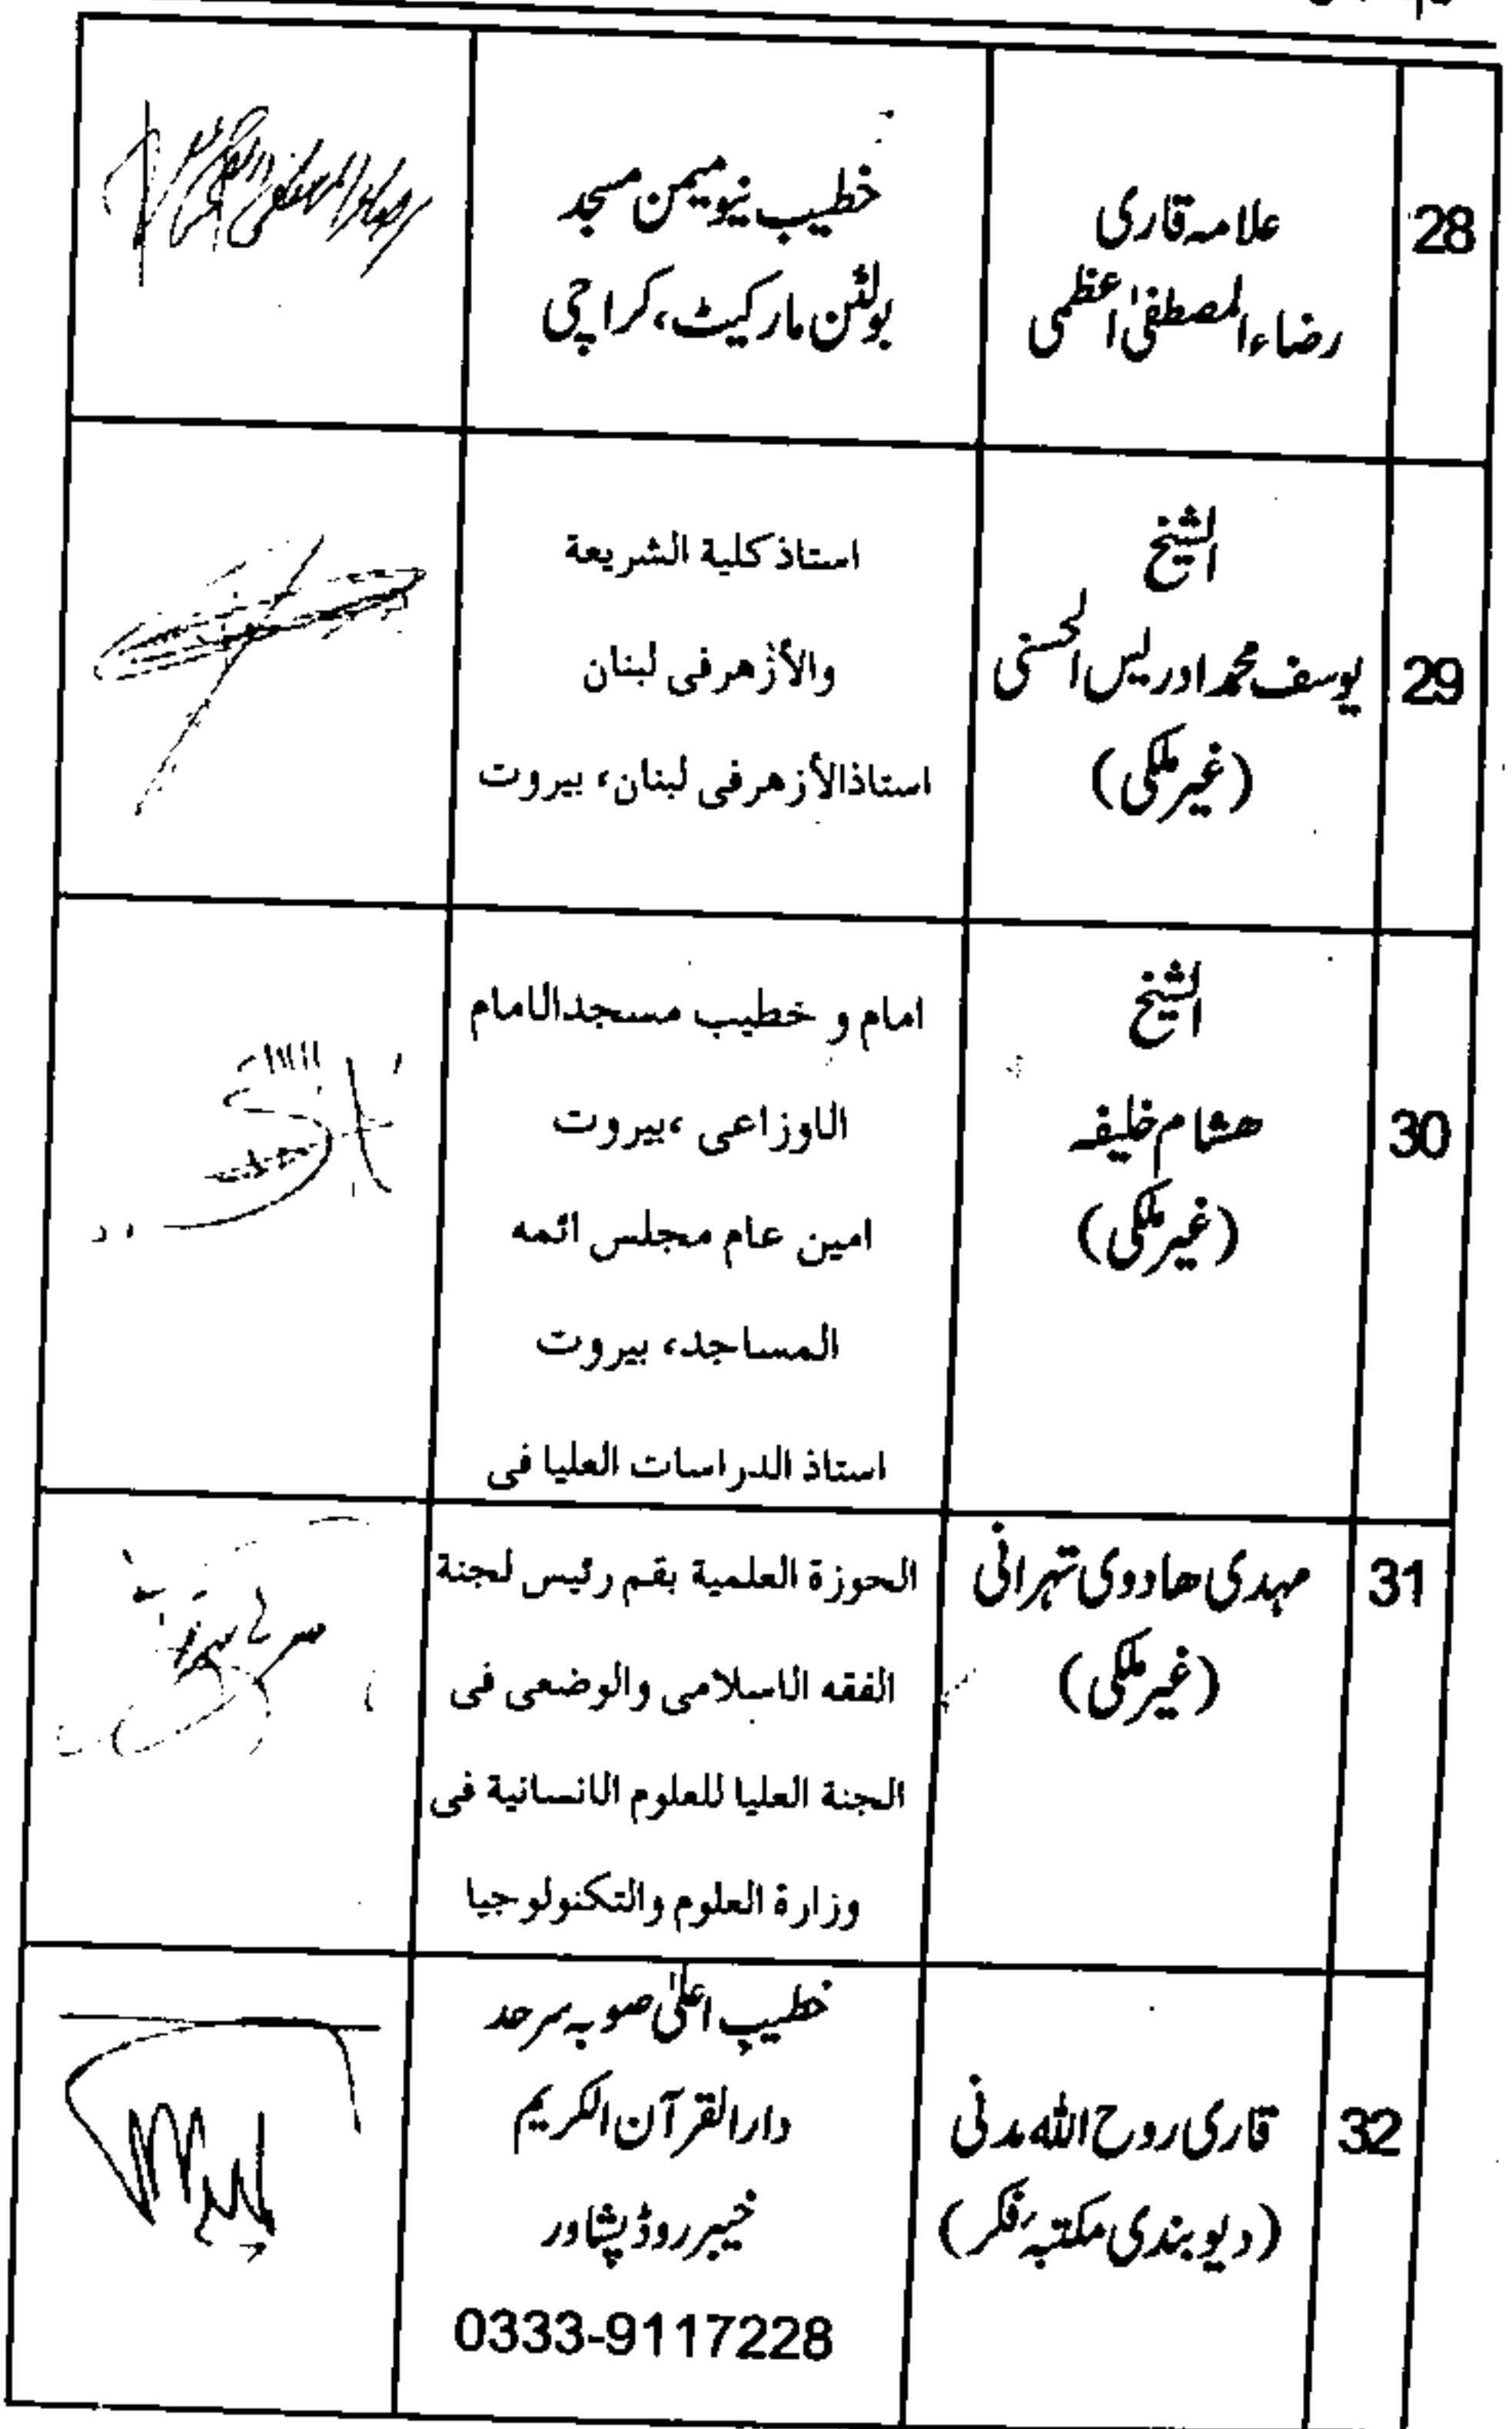 28
علامہ قاری
رضاء المصطفیٰ اعظمی
خطیب نیو میمن مسجد
بولٹن مارکیٹ، کراچی
29
الشیخ
یوسف محمد ادریس الحسنی
(غیر ملکی)
استاذ كلية الشريعة
والأزهر فى لبنان
استاذ الأزهر فى لبنان، بيروت
30
الشیخ
ھشام خلیفہ
(غیر ملکی)
امام و خطيب مسجد الامام
الاوزاعى ،بيروت
امين عام مجلس ائمه
المساجد، بيروت
استاذ الدراسات العليا فى
31
مہدی ھادوی تہرانی
(غیر ملکی)
الحوزة العلمية بقم رئيس لجنة
الفقه الاسلامى والوضعى فى
الجنة العليا للعلوم الانسانية فى
وزارة العلوم والتكنولوجيا
32
قاری روح اللہ مدنی
(دیوبندی مکتبہ فکر)
خطیب اعلیٰ صوبہ سرحد
دارالقرآن الکریم
خیبر روڈ پشاور
0333-9117228